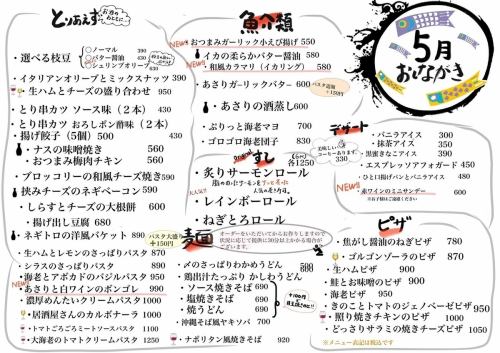 とりあえず
お酒のおともに
・選べる枝豆
ノーマル 390
バター醤油 430
シュリンプオリーブ
・イタリアンオリーブとミックスナッツ 390
・生ハムとチーズの盛り合わせ 950
・とり串カツ ソース味（２本）
・とり串カツ おろしポン酢味（２本）
・揚げ餃子（5個）500 430
・ナスの味噌焼き 560
・おつまみ梅肉チキン 560
・ブロッコリーの和風チーズ焼き
・挟みチーズのネギベーコン 590
・しらすとチーズの大根餅 600
・揚げ出し豆腐 680
・ネギトロの洋風バケット 890
魚介類
NEW!! おつまみガーリック小えび揚げ 550
NEW!! ・イカの柔らかバター醤油 550
・和風カラマリ（イカリング） 580
・あさりガーリックバター 690
パスタ追加 +150円
・あさりの酒蒸し 690
・ぷりっと海老マヨ 700
・ゴロゴロ海老団子 830
すし
各1250
・炙りサーモンロール
・レインボーロール
・ねぎとろロール
5月
おしながき
デザート
美味しいコーヒーあります。330
・バニラアイス 300
・抹茶アイス 350
・黒蜜きなこアイス 390
・エスプレッソアフォガード 450
・ひと口揚げパンとバニラアイス 450
NEW!! 赤ワインのミニサンデー 600
麺
パスタ大盛り +150円
オーダーをいただいてからお作りしますので
状況に応じて提供に30分以上かかる場合がございます。
・生ハムとレモンのさっぱりパスタ 870
・シラスのさっぱりパスタ 890
・海老とアボカドのバジルパスタ 950
NEW!! ・あさりと白ワインのボンゴレ 990
・濃厚めんたいクリームパスタ 1000
・居酒屋さんのカルボナーラ 1000
・トマトごろごろミートソースパスタ 1000
・大海老のトマトクリームパスタ 1250
・〆のさっぱりわかめうどん 550
・鶏出汁たっぷり かしわうどん 650
・ソース焼きそば 690
・塩焼きそば 690
・焼うどん 690
+100円
・沖縄そば風ヤキソバ 700
・ナポリタン風焼きそば 920
ピザ
・焦がし醤油のねぎピザ 780
・ゴルゴンゾーラのピザ 870
・生ハムピザ 900
・鮭とお味噌のピザ 900
・海老ピザ 950
・きのことトマトのジェノベーゼピザ 950
・照り焼きチキンのピザ 1000
・どっさりサラミの焼きチーズピザ 1050
※メニュー表記は税込です